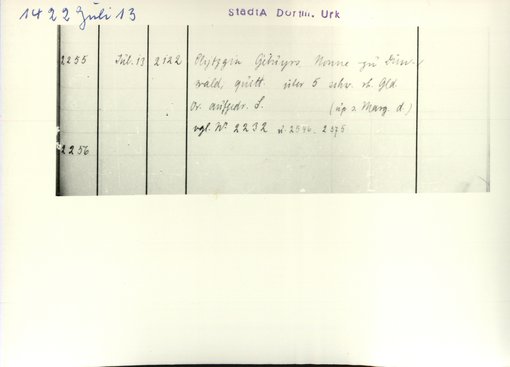 1422 Juli 13
StadtA Dortm. Urk
2255 Jul. 13 2122 Nonne zu Dün-
wald, quitt. über 5 schw. rh. Gld
Or. aufgedr. S. (in p. s. Marg. d.)
vgl. Nr 2232 u. 2546. 2575
2256